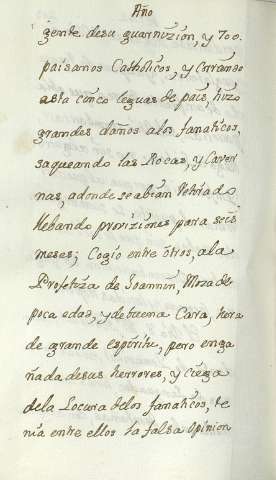 Año
gente desu guarnizión, y 700.
paisanos Catholicos, y Corrando
asta cinco leguas de país, hizo
grandes daños alos fanaticos,
saqueando las Rocas, y Caver
nas, adonde seabian Retirado
llebando provisiones para seis
meses; Cogio entre ótros, a la
Profetiza de Joannin, Moza de
poca edad, y debuena Cara, hera
de grande espiritu, pero enga
ñada desus herrores, y ciega
dela Locura delos fanaticos, te
nia entre ellos la falsa Opinion